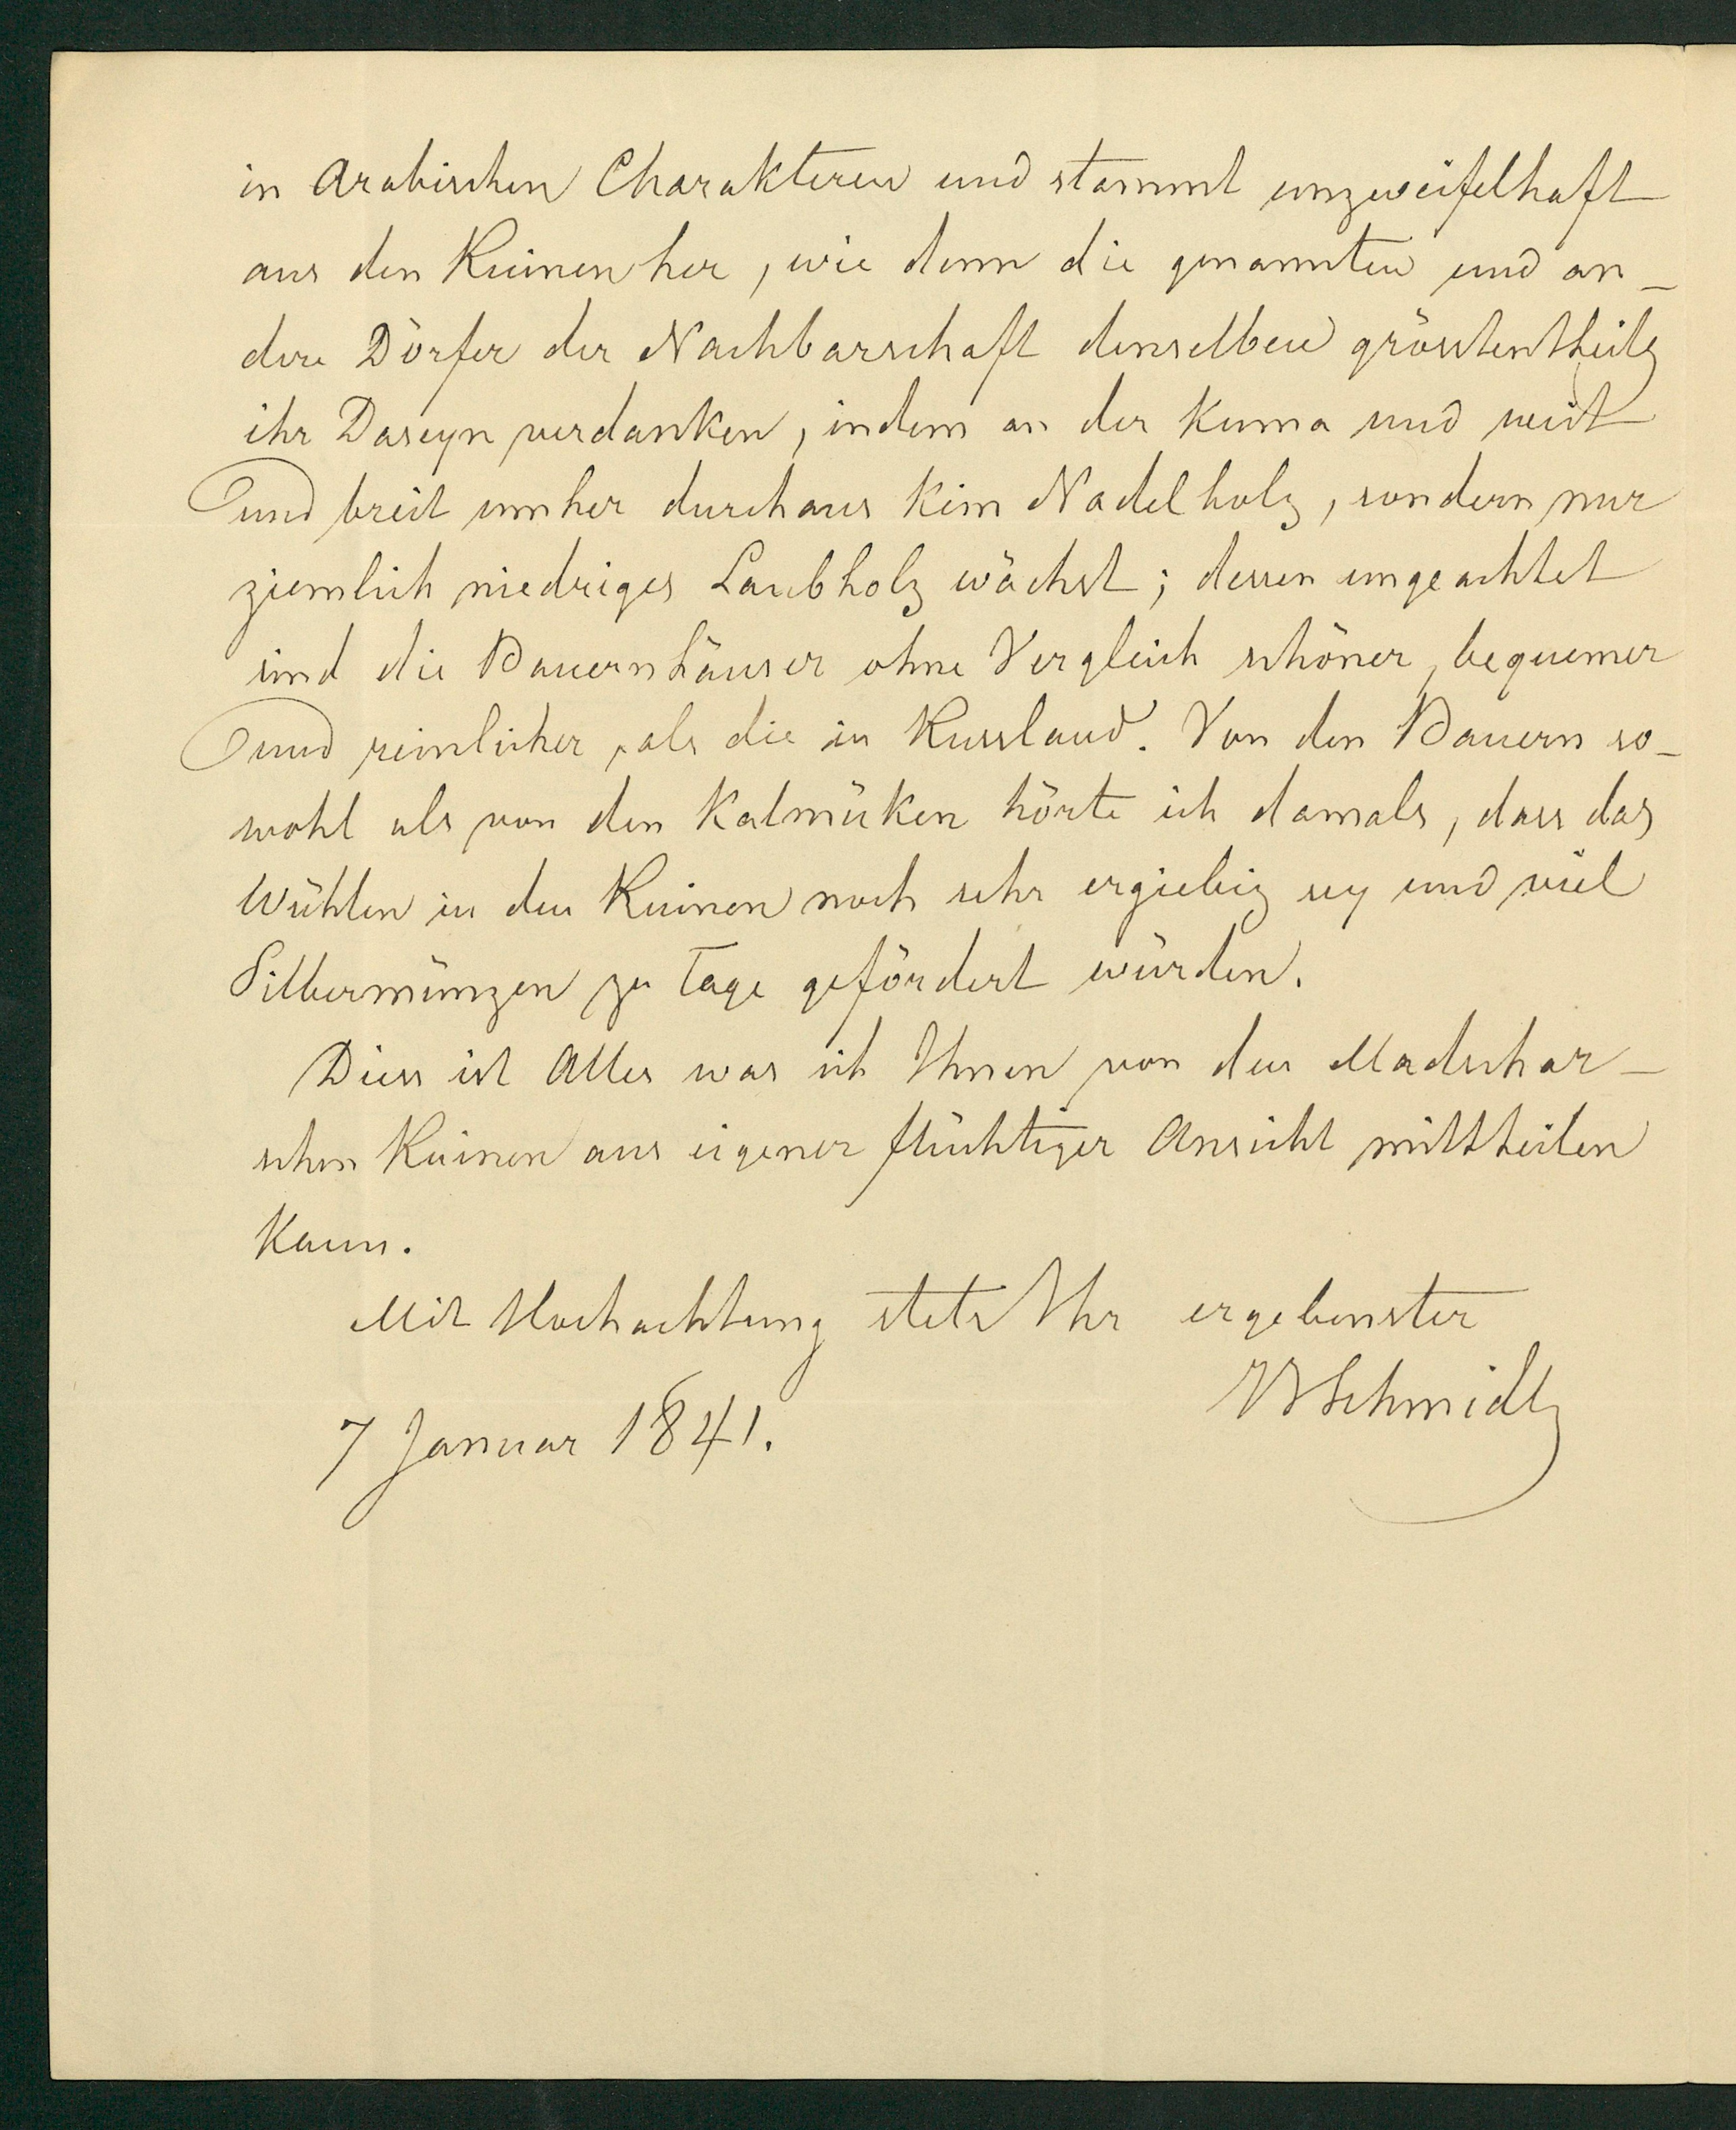 in Arabischen Charakteren und stammt unzweifelhaft
aus den Ruinen her, wie denn die genannten und an-
dere Dörfer der Nachbarschaft denselben grösstentheils
ihr Daseyn verdanken, indem an der Kuma und weit
und breit umher durchaus kein Nadelholz, sondern nur
ziemlich niedriges Laubholz wächst; dessen ungeachtet
sind die Bauernhäuser ohne Vergleich schöner, bequemer
und reinlicher, als die in Russland. Von den Bauern so-
wohl als von den Kalmüken hörte ich damals, dass das
Wühlen in den Ruinen noch sehr ergiebig sey und viel
Silbermünzen zu Tage gefördert würden.
Diess ist Alles was ich Ihnen von den Madschar-
schen Ruinen aus eigener flüchtiger Ansicht mittheilen
kann.
Mit Hochachtung stets Ihr ergebenster
Schmidt
7 Januar 1841.